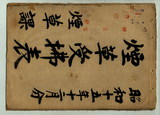 昭和十五年三月分
煙草受拂表
煙草課